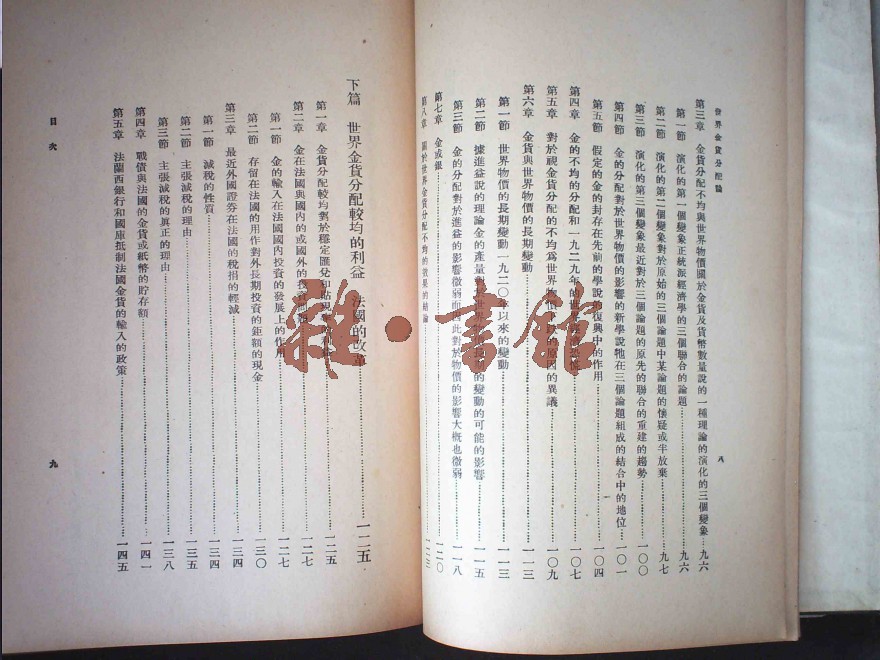 世界金貨分配論
八
第三章 金貨分配不均與世界物價關於金貨及貨幣數量說的一種理論的演化的三個變象…九六
第一節 演化的第一個變象正統派經濟學的三個聯合的論題…九六
第二節 演化的第二個變象對於原始的三個論題中某論題的懷疑或半放棄…九七
第三節 演化的第三個變象最近對於三個論題的原先的聯合的重建的趨勢…一〇〇
第四節 金的分配對於世界物價的影響的新學說牠在三個論題組成的結合中的地位…一〇一
第五節 假定的金的封存在先前的學說的復興中的作用…一〇四
第四章 金的不均的分配和一九二九年的世界…一〇七
第五章 對於視金貨分配的不均爲世界物價…跌的原因的異議…一〇九
第六章 金貨與世界物價的長期變動…一一三
第一節 世界物價的長期變動一九二〇年以來的變動…一一三
第二節 據進益說的理論金的產量對於世界…長期的變動的可能的影響…一一五
第三節 金的分配對於進益的影響微弱而因此對於物價的影響大概也微弱…一一八
第七章 金或銀…一二〇
第八章 關於世界金貨分配不均的效果的結論…一二三
下篇 世界金貨分配較均的利益 法國的改革…一二五
第一章 金貨分配較均對於穩定匯兌和貼現率…一二五
第二章 金在法國與國內的或國外的投資…一二七
第一節 金的輸入在法國國內投資的發展上的作用…一二七
第二節 存留在法國的用作對外長期投資的鉅額的現金…一三〇
第三章 最近外國證券在法國的稅捐的輕減…一三四
第一節 減稅的性質…一三四
第二節 主張減稅的理由…一三五
第三節 主張減稅的眞正的理由…一三八
第四章 戰債與法國的金貨或紙幣的貯存額…一四一
第五章 法蘭西銀行和國庫抵制法國金貨的輸入的政策…一四五
目次
九
雜·書館